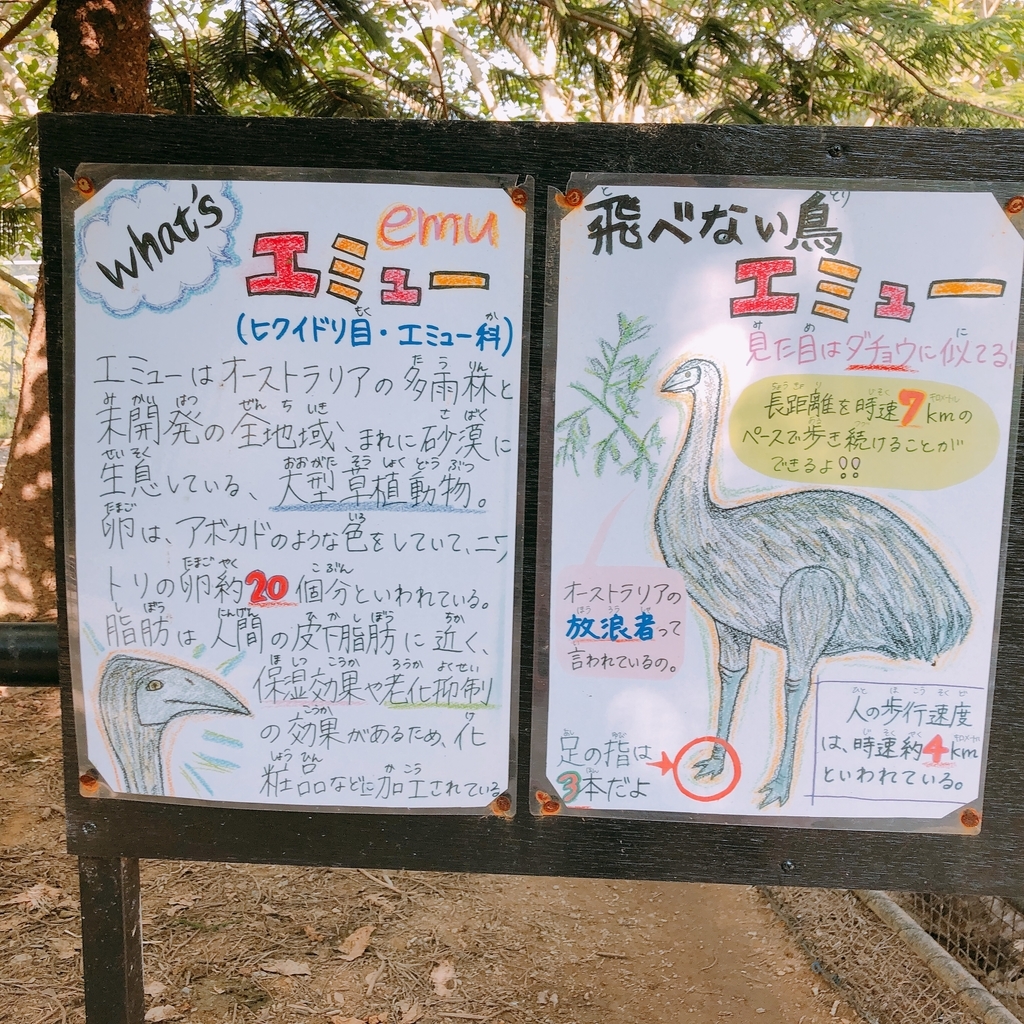 what's
emu
エミュー
(ヒクイドリ目・エミュー科)
エミューはオーストラリアの多雨林と
未開発の全地域、まれに砂漠に
生息している、大型草植動物。
卵は、アボカドのような色をしていて、ニワ
トリの卵約20個分といわれている。
脂肪は人間の皮下脂肪に近く、
保湿効果や老化抑制
の効果があるため、化
粧品などに加工されている
飛べない鳥
エミュー
見た目はダチョウに似てる!
長距離を時速7kmの
ペースで歩き続けることが
できるよ!!
オーストラリアの
放浪者って
言われているの。
足の指は
3本だよ
人の歩行速度
は、時速約4km
といわれている。